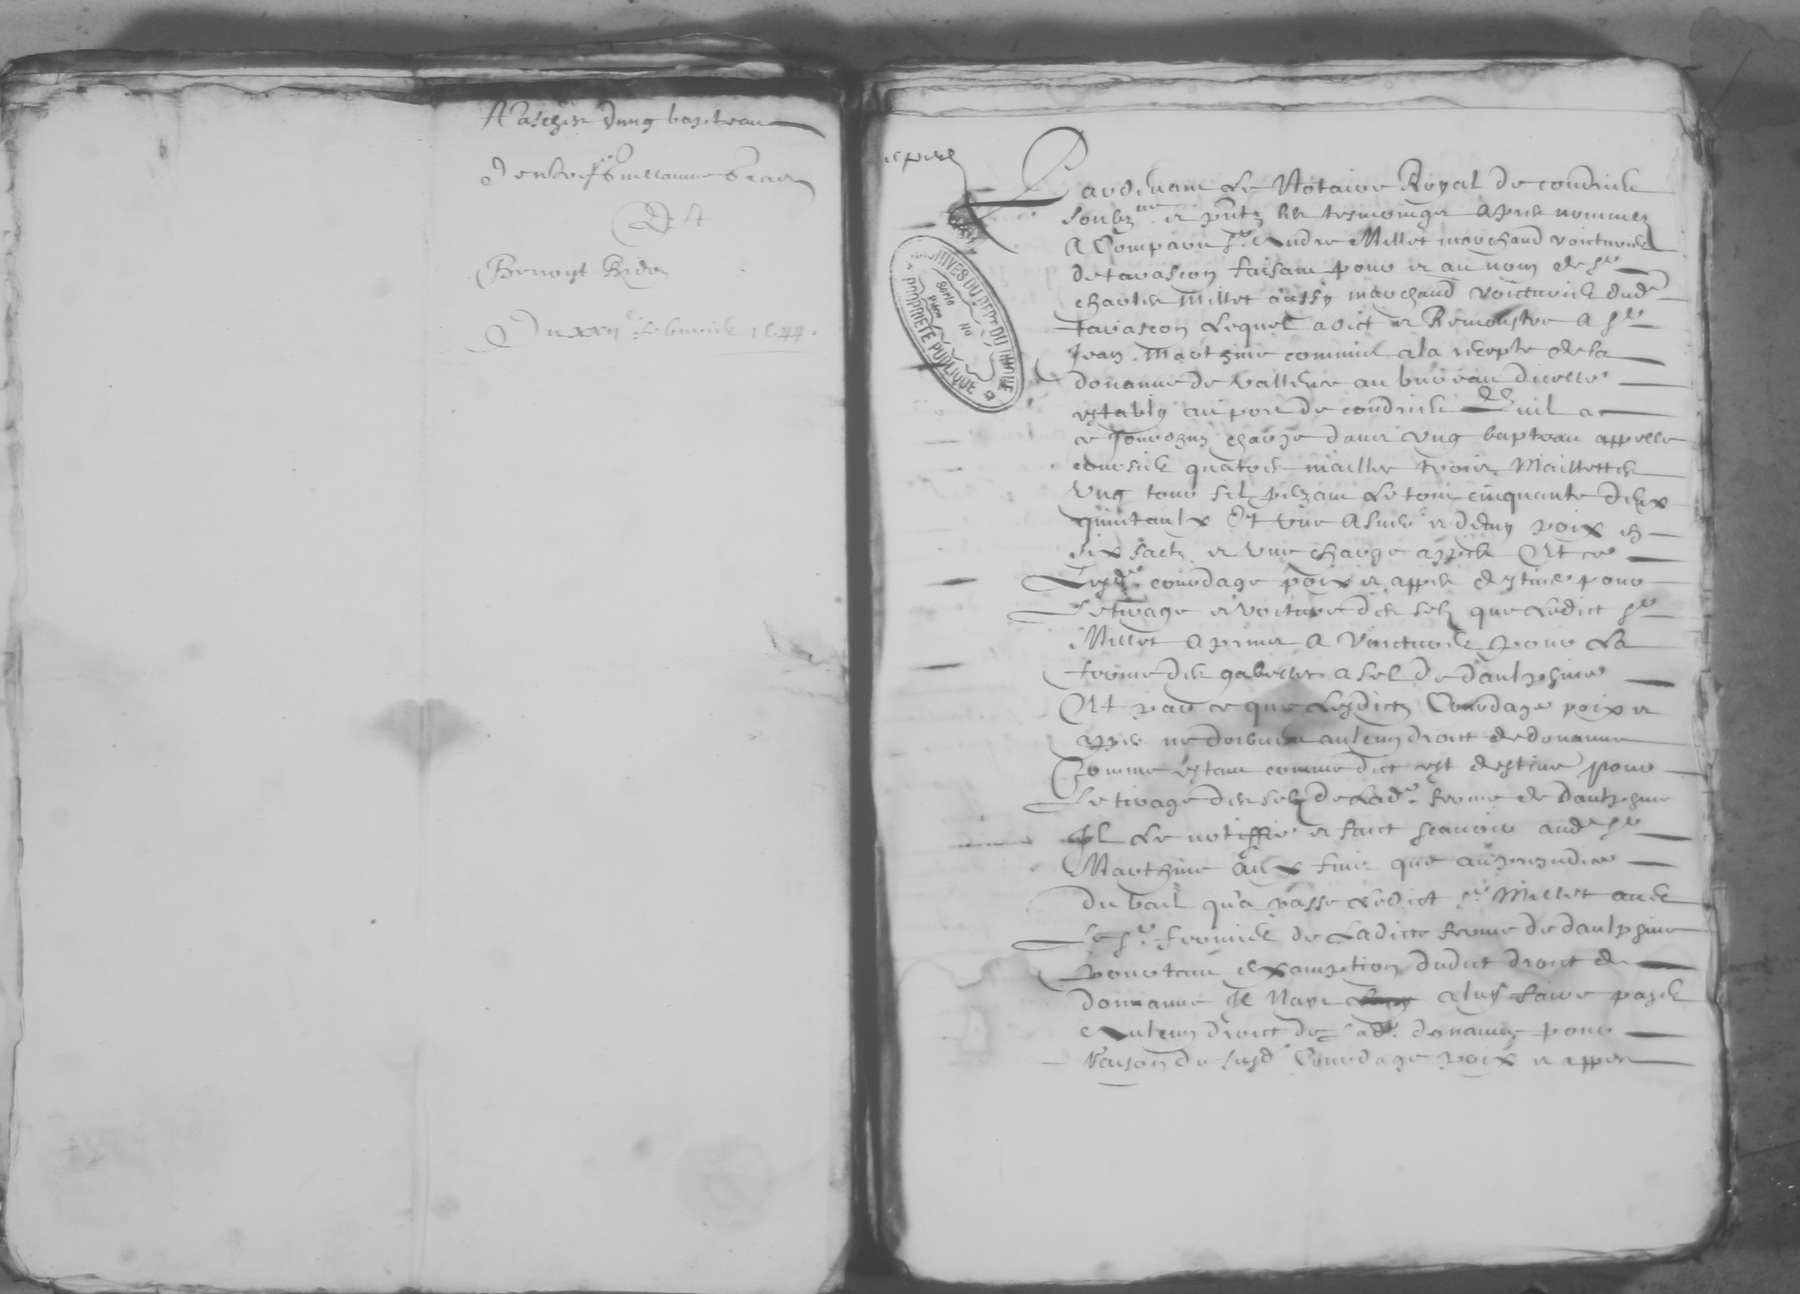 dung bapteau
Guillaume
Et
Benoyt
Du xxii.e febvrier 1644.
Pardevant Le Notaire Royal de condrieu
soubz.ne et pntz les tesmoingz apres nommez
A Comparu s.r Andre Millet marchand voicturier
de tarascon faisant pour et au nom de s.r
charles Millet aussy marchand voicturier dud.
tarascon Lequel a dict et Remonstre A s.r
Jean Marthine commis a la recepte de la
douanne de vallence au bureau dicelle
estably au port de condrieu Quil a
ce Jourdhuy charge dans ung bapteau appelle
quatorze mailles trois Maillettes
ung pezant Le tout cinquante deux
quintaulx Et une et demy poix en
six sactz et une charge Et ce
Lesd. courdage poix et destine pour
Le tirage et voiture des selz que Ledict s.r
Millet A prins A Voicturer pour La
ferme des gabelles a sel de daulphine
Et par ce que Lesdictz Courdage poix et
ne doibvent aulcung droict de douanne
Comme estant comme dict est destine pour
Le tirage des selz de Lad. ferme de daulphine
Il Le notiffie et faict scavoir aud. s.r
Marthine aux fins que au prejudice
du bail qu'a passe Ledict s.r Millet avec
Le s.r fermier de Ladicte ferme de daulphine
portant exemption dudict droict de
douanne Il Naye a luy faire payer
Aulcung droict de Lad. douanne pour
raison du susd. Courdage poix et
ARCHIVES DU DEPT DU RHONE
PROPRIÉTÉ PUBLIQUE
Serie No
Pièce